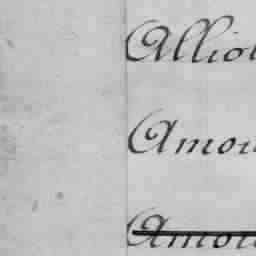 Alliot
Amou
Amou